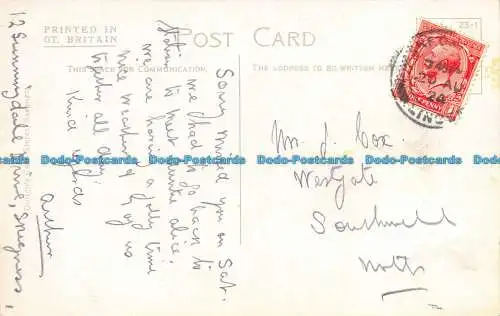 PRINTED IN
GT. BRITAIN
POST CARD
23-1
THIS SPACE FOR COMMUNICATION.
THE ADDRESS TO BE WRITTEN HERE
12 Sunnydale Drive, Skegness,
Sorry missed you on Sat.
we had to go back to
station to meet Auntie Alice.
we are having a jolly time
nice weather & dogs us
together all day.
Kind regards
Arthur
Mr J. Cox.
Westgate
Southwell
Notts
Dodo-Postcards Dodo-Postcards Dodo-Postcards Dodo-Postcards
Dodo-Postcards Dodo-Postcards Dodo-Postcards Dodo-Postcards